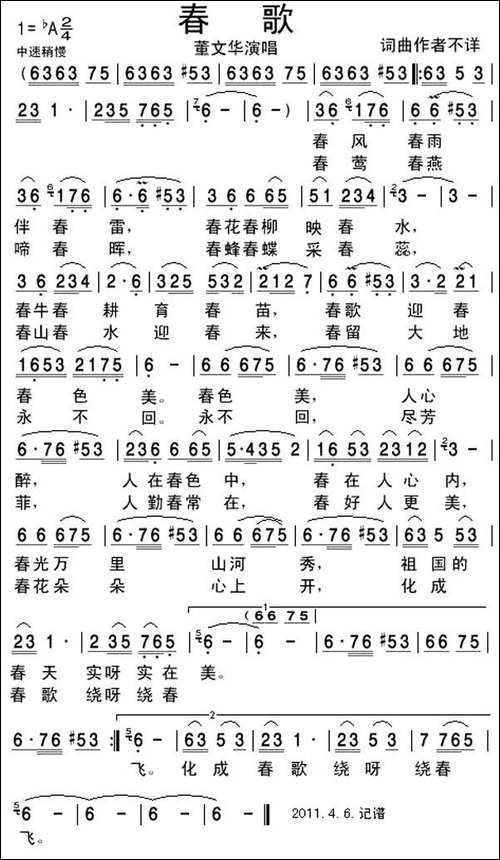 春 歌
1= ♭A 2/4
中速稍慢
董文华演唱
词曲作者不详
( 6363 75 | 6363 #53 | 6363 75 | 6363 #53 |: 63 5 3 |
23 1· | 235 765 | 6 - | 6 - ) | 36 176 | 6 6 #53 |
春 风 春雨
春 莺 春燕
36 176 | 6·6 #53 | 3 6 6 65 | 51 234 | 3 - | 3 - |
伴 春 雷, 春花春柳 映 春 水,
啼 春 晖, 春蜂春蝶 采 春 蕊,
3 6 234 | 2·6 | 325 532 | 212 7 | 6 6 #53 | 3·2 21 |
春牛春 耕 育 春 苗, 春歌 迎 春
春山春 水 迎 春 来, 春留 大 地
1653 2175 | 6 - | 6 6 675 | 6·76 #53 | 6 6 675 |
春 色 美。 春色 美, 人心
永 不 回。 永不 回, 尽芳
6·76 #53 | 236 6 65 | 5·435 2 | 16 53 2312 | 3 - |
醉, 人 在春色 中, 春 在 人 心 内,
菲, 人 勤春常 在, 春 好 人 更 美,
6 6 675 | 6·76 #53 | 6 6 675 | 6·76 #53 | 63 5 53 |
春光万 里 山河 秀, 祖 国 的
春花朵 朵 心上 开, 化 成
1 ( 66 75 |
23 1· | 2 35 765 | 6 - | 6 - | 6·76 #53 | 66 75 |
春 天 实呀 实在 美。
春 歌 绕呀 绕春
2
6·76 #53 :| 6 - | 63 5 3 | 23 1· | 23 5 3 | 7 765 |
飞。 化 成 春 歌 绕 呀 绕春
6 - | 6 - | 6 - | 6 - | 2011.4.6.记谱
飞。